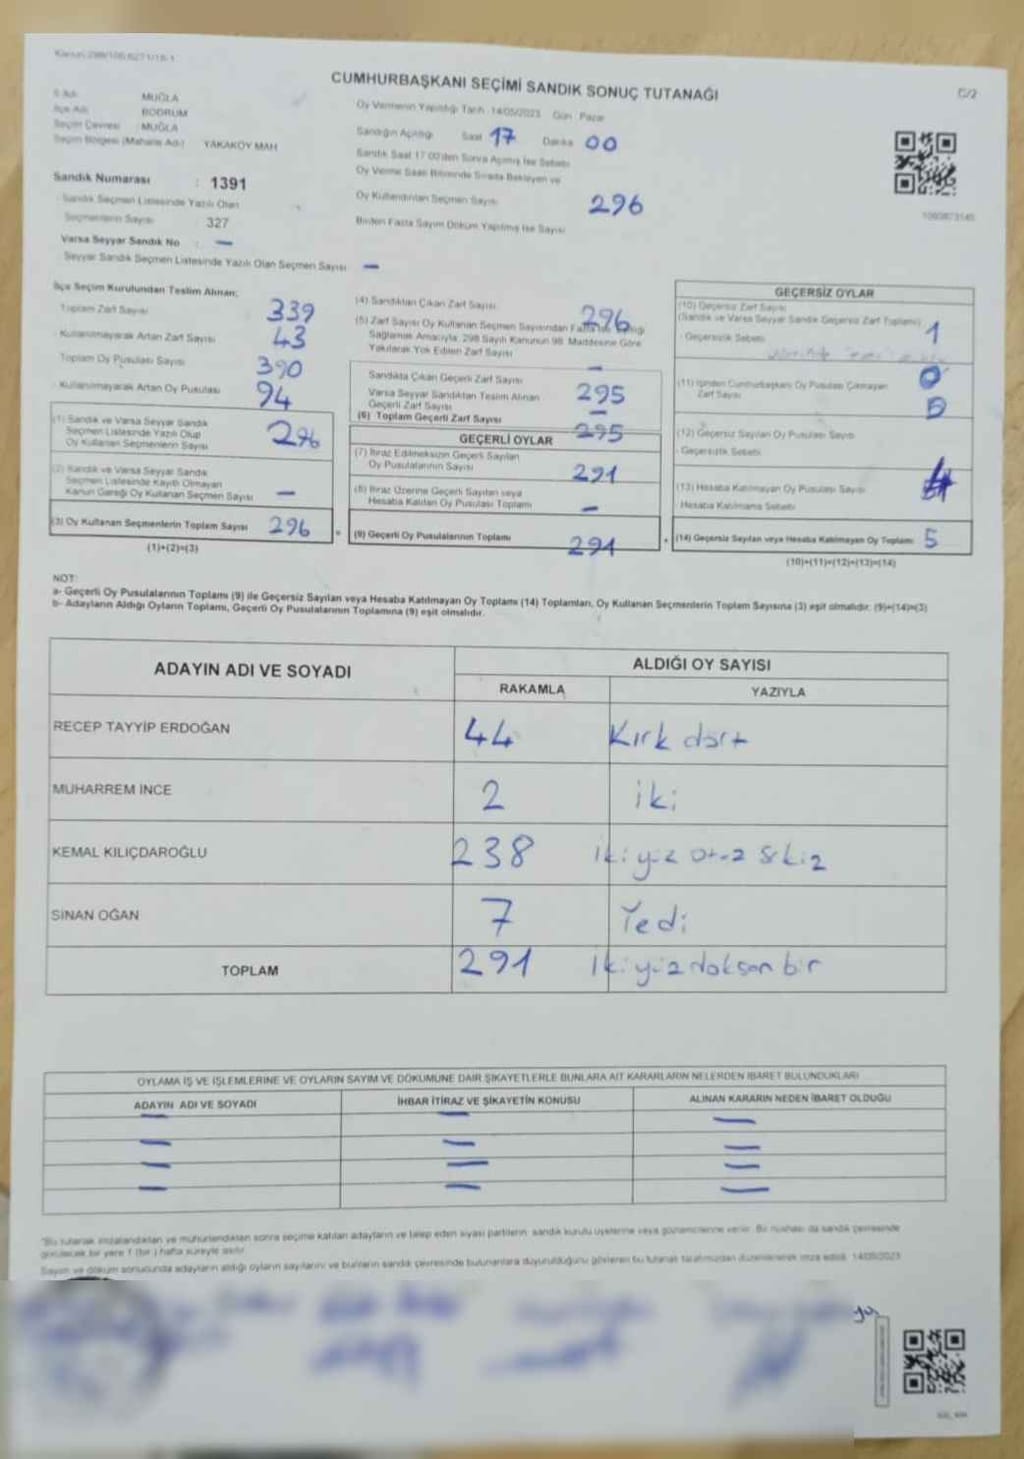 Kanun:298/105,6271/18-1
CUMHURBAŞKANI SEÇİMİ SANDIK SONUÇ TUTANAĞI
C/2
İl Adı : MUĞLA
İlçe Adı : BODRUM
Seçim Çevresi : MUĞLA
Seçim Bölgesi (Mahalle Adı) : YAKAKÖY MAH
Sandık Numarası : 1391
Sandık Seçmen Listesinde Yazılı Olan
Seçmenlerin Sayısı 327
Varsa Seyyar Sandık No : —
Seyyar Sandık Seçmen Listesinde Yazılı Olan Seçmen Sayısı —
Oy Vermenin Yapıldığı Tarih : 14/05/2023 Gün : Pazar
Sandığın Açıldığı Saat 17 Dakika 00
Sandık Saat 17:00'den Sonra Açılmış İse Sebebi
Oy Verme Saati Bitiminde Sırada Bekleyen ve
Oy Kullandırılan Seçmen Sayısı 296
Birden Fazla Sayım Döküm Yapılmış İse Sayısı
İlçe Seçim Kurulundan Teslim Alınan;
Toplam Zarf Sayısı 339
Kullanılmayarak Artan Zarf Sayısı 43
Toplam Oy Pusulası Sayısı 390
Kullanılmayarak Artan Oy Pusulası 94
(1) Sandık ve Varsa Seyyar Sandık
Seçmen Listesinde Yazılı Olup
Oy Kullanan Seçmenlerin Sayısı 296
(2) Sandık ve Varsa Seyyar Sandık
Seçmen Listesinde Kayıtlı Olmayan
Kanun Gereği Oy Kullanan Seçmen Sayısı —
(3) Oy Kullanan Seçmenlerin Toplam Sayısı 296
(1)+(2)=(3)
(4) Sandıktan Çıkan Zarf Sayısı 296
(5) Zarf Sayısı Oy Kullanan Seçmen Sayısından Fazla ise Eşitliği
Sağlamak Amacıyla, 298 Sayılı Kanunun 98. Maddesine Göre
Yakılarak Yok Edilen Zarf Sayısı —
Sandıkta Çıkan Geçerli Zarf Sayısı 295
Varsa Seyyar Sandıktan Teslim Alınan
Geçerli Zarf Sayısı —
(6) Toplam Geçerli Zarf Sayısı 295
GEÇERLİ OYLAR
(7) İtiraz Edilmeksizin Geçerli Sayılan
Oy Pusulalarının Sayısı 291
(8) İtiraz Üzerine Geçerli Sayılan veya
Hesaba Katılan Oy Pusulası Toplamı —
(9) Geçerli Oy Pusulalarının Toplamı 291
GEÇERSİZ OYLAR
(10) Geçersiz Zarf Sayısı
(Sandık ve Varsa Seyyar Sandık Geçersiz Zarf Toplamı) 1
- Geçersizlik Sebebi
(11) İçinden Cumhurbaşkanı Oy Pusulası Çıkmayan
Zarf Sayısı
(12) Geçersiz Sayılan Oy Pusulası Sayısı
- Geçersizlik Sebebi
(13) Hesaba Katılmayan Oy Pusulası Sayısı
- Hesaba Katılmama Sebebi
(14) Geçersiz Sayılan veya Hesaba Katılmayan Oy Toplamı 5
(10)+(11)+(12)+(13)=(14)
NOT:
a- Geçerli Oy Pusulalarının Toplamı (9) ile Geçersiz Sayılan veya Hesaba Katılmayan Oy Toplamı (14) Toplamları, Oy Kullanan Seçmenlerin Toplam Sayısına (3) eşit olmalıdır. (9)+(14)=(3)
b- Adayların Aldığı Oyların Toplamı, Geçerli Oy Pusulalarının Toplamına (9) eşit olmalıdır.
ADAYIN ADI VE SOYADI ALDIĞI OY SAYISI
RAKAMLA YAZIYLA
RECEP TAYYİP ERDOĞAN 44 Kırk dört
MUHARREM İNCE 2 iki
KEMAL KILIÇDAROĞLU 238 ikiyüz otuz sekiz
SİNAN OĞAN 7 Yedi
TOPLAM 291 ikiyüz doksan bir
OYLAMA İŞ VE İŞLEMLERİNE VE OYLARIN SAYIM VE DÖKÜMÜNE DAİR ŞİKAYETLERLE BUNLARA AİT KARARLARIN NELERDEN İBARET BULUNDUKLARI
ADAYIN ADI VE SOYADI İHBAR İTİRAZ VE ŞİKAYETİN KONUSU ALINAN KARARIN NEDEN İBARET OLDUĞU
— — —
— — —
— — —
— — —
"Bu tutanak imzalandıktan ve mühürlendikten sonra seçime katılan adayların ve talep eden siyasi partilerin sandık kurulu üyelerine veya gözlemcilerine verilir. Bir nüshası da sandık çevresinde
görülecek bir yere 1 (bir ) hafta süreyle asılır.
Sayım ve döküm sonucunda adayların aldığı oyların sayılarını ve bunların sandık çevresinde bulunanlara duyurulduğunu gösteren bu tutanak tarafımızdan düzenlenerek imza edildi. 14/05/2023